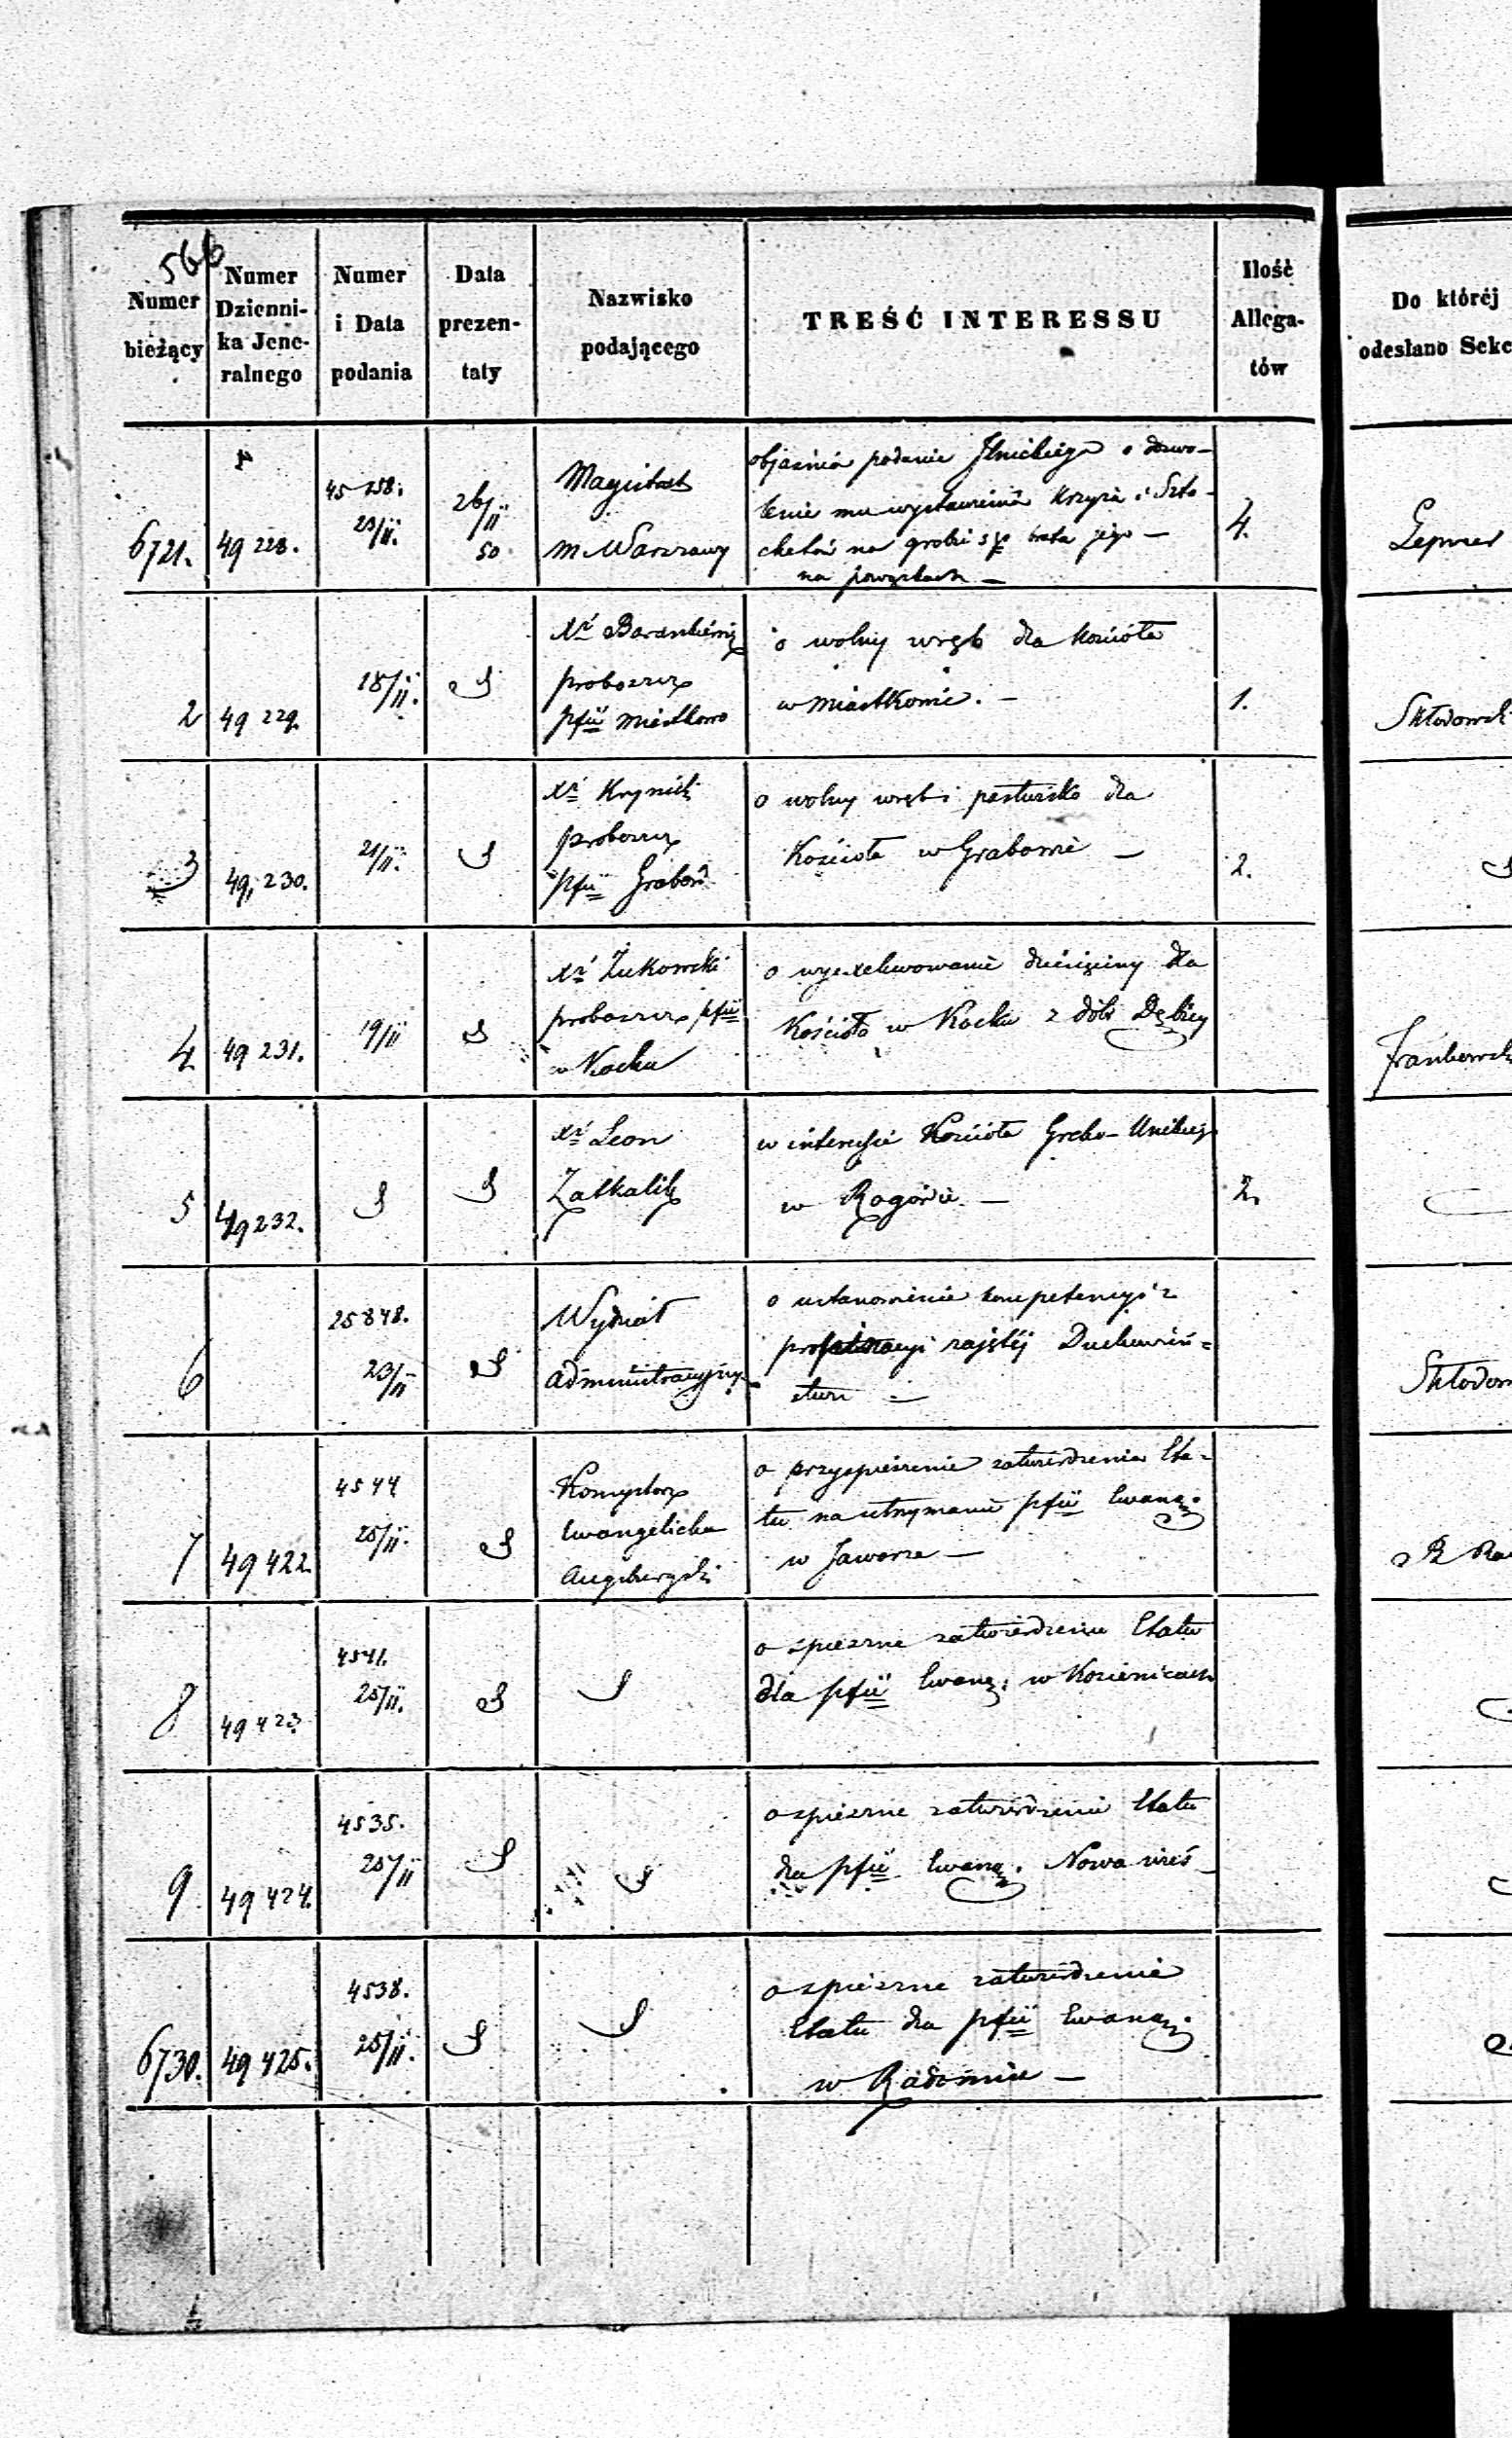 566
Numer bieżący
Numer Dzienni-ka Jene-ralnego
Numer i Data podania
Data prezen-taty
Nazwisko podającego
TREŚĆ INTERESSU
Ilość Allega-tów
Do której
odesłano Sekc
6721. 49 228. 45 258. 23/II. 26/II 50
Magistrat
m Warszawy
objaśnia podanie Ilnickiego o dozwo-
lenie mu wystawienia Krzyża i Szta-
chetów na grobie śp brata jego —
na powązkach —
4.
2 49 229. 18/II.
Xs Barankiewicz
proboszcz
pfii Miastkowo
o wolny wręb dla kościoła
w Miastkowie. —
1.
3 49,230. 21/II.
Xs Krynicki
proboszcz
pfii Grabów
o wolny wręb i pastwisko dla
Kościoła w Grabowie —
2.
4 49 231. 19/II
Xs Żukowski
proboszcz pfii
w Kocku
o wyexekwowanie dziesięciny dla
Kościoła w Kocku z dóbr Dębicy
5 49232.
Xs Leon
Zatkalik
w interesie Kościoła Greko-Unickiego
w Rogowie. —
2.
6 25848. 23/II
Wydział
Administracyjny
o ustanowienie kompetencyi z
propinacyi zajętéj Duchowień=
stwu —
7 49 422. 4544 25/II.
Konsystorz
Ewangelicko
Augsburgski
o przyspieszenie zatwierdzenia Eta-
tu na utrzymanie pfii Ewang:
w Jaworze —
8 49 423. 4541. 25/II.
o spieszne zatwierdzenie Etatu
dla pfii Ewang: w Kozienicach
9 49 424. 4535. 25/II
o spieszne zatwierdzenie Etatu
dla pfii Ewang. Nowa wieś —
6730. 49 425. 4538. 25/II.
o spieszne zatwierdzenie
Etatu dla pfii Ewang:
w Radomiu —